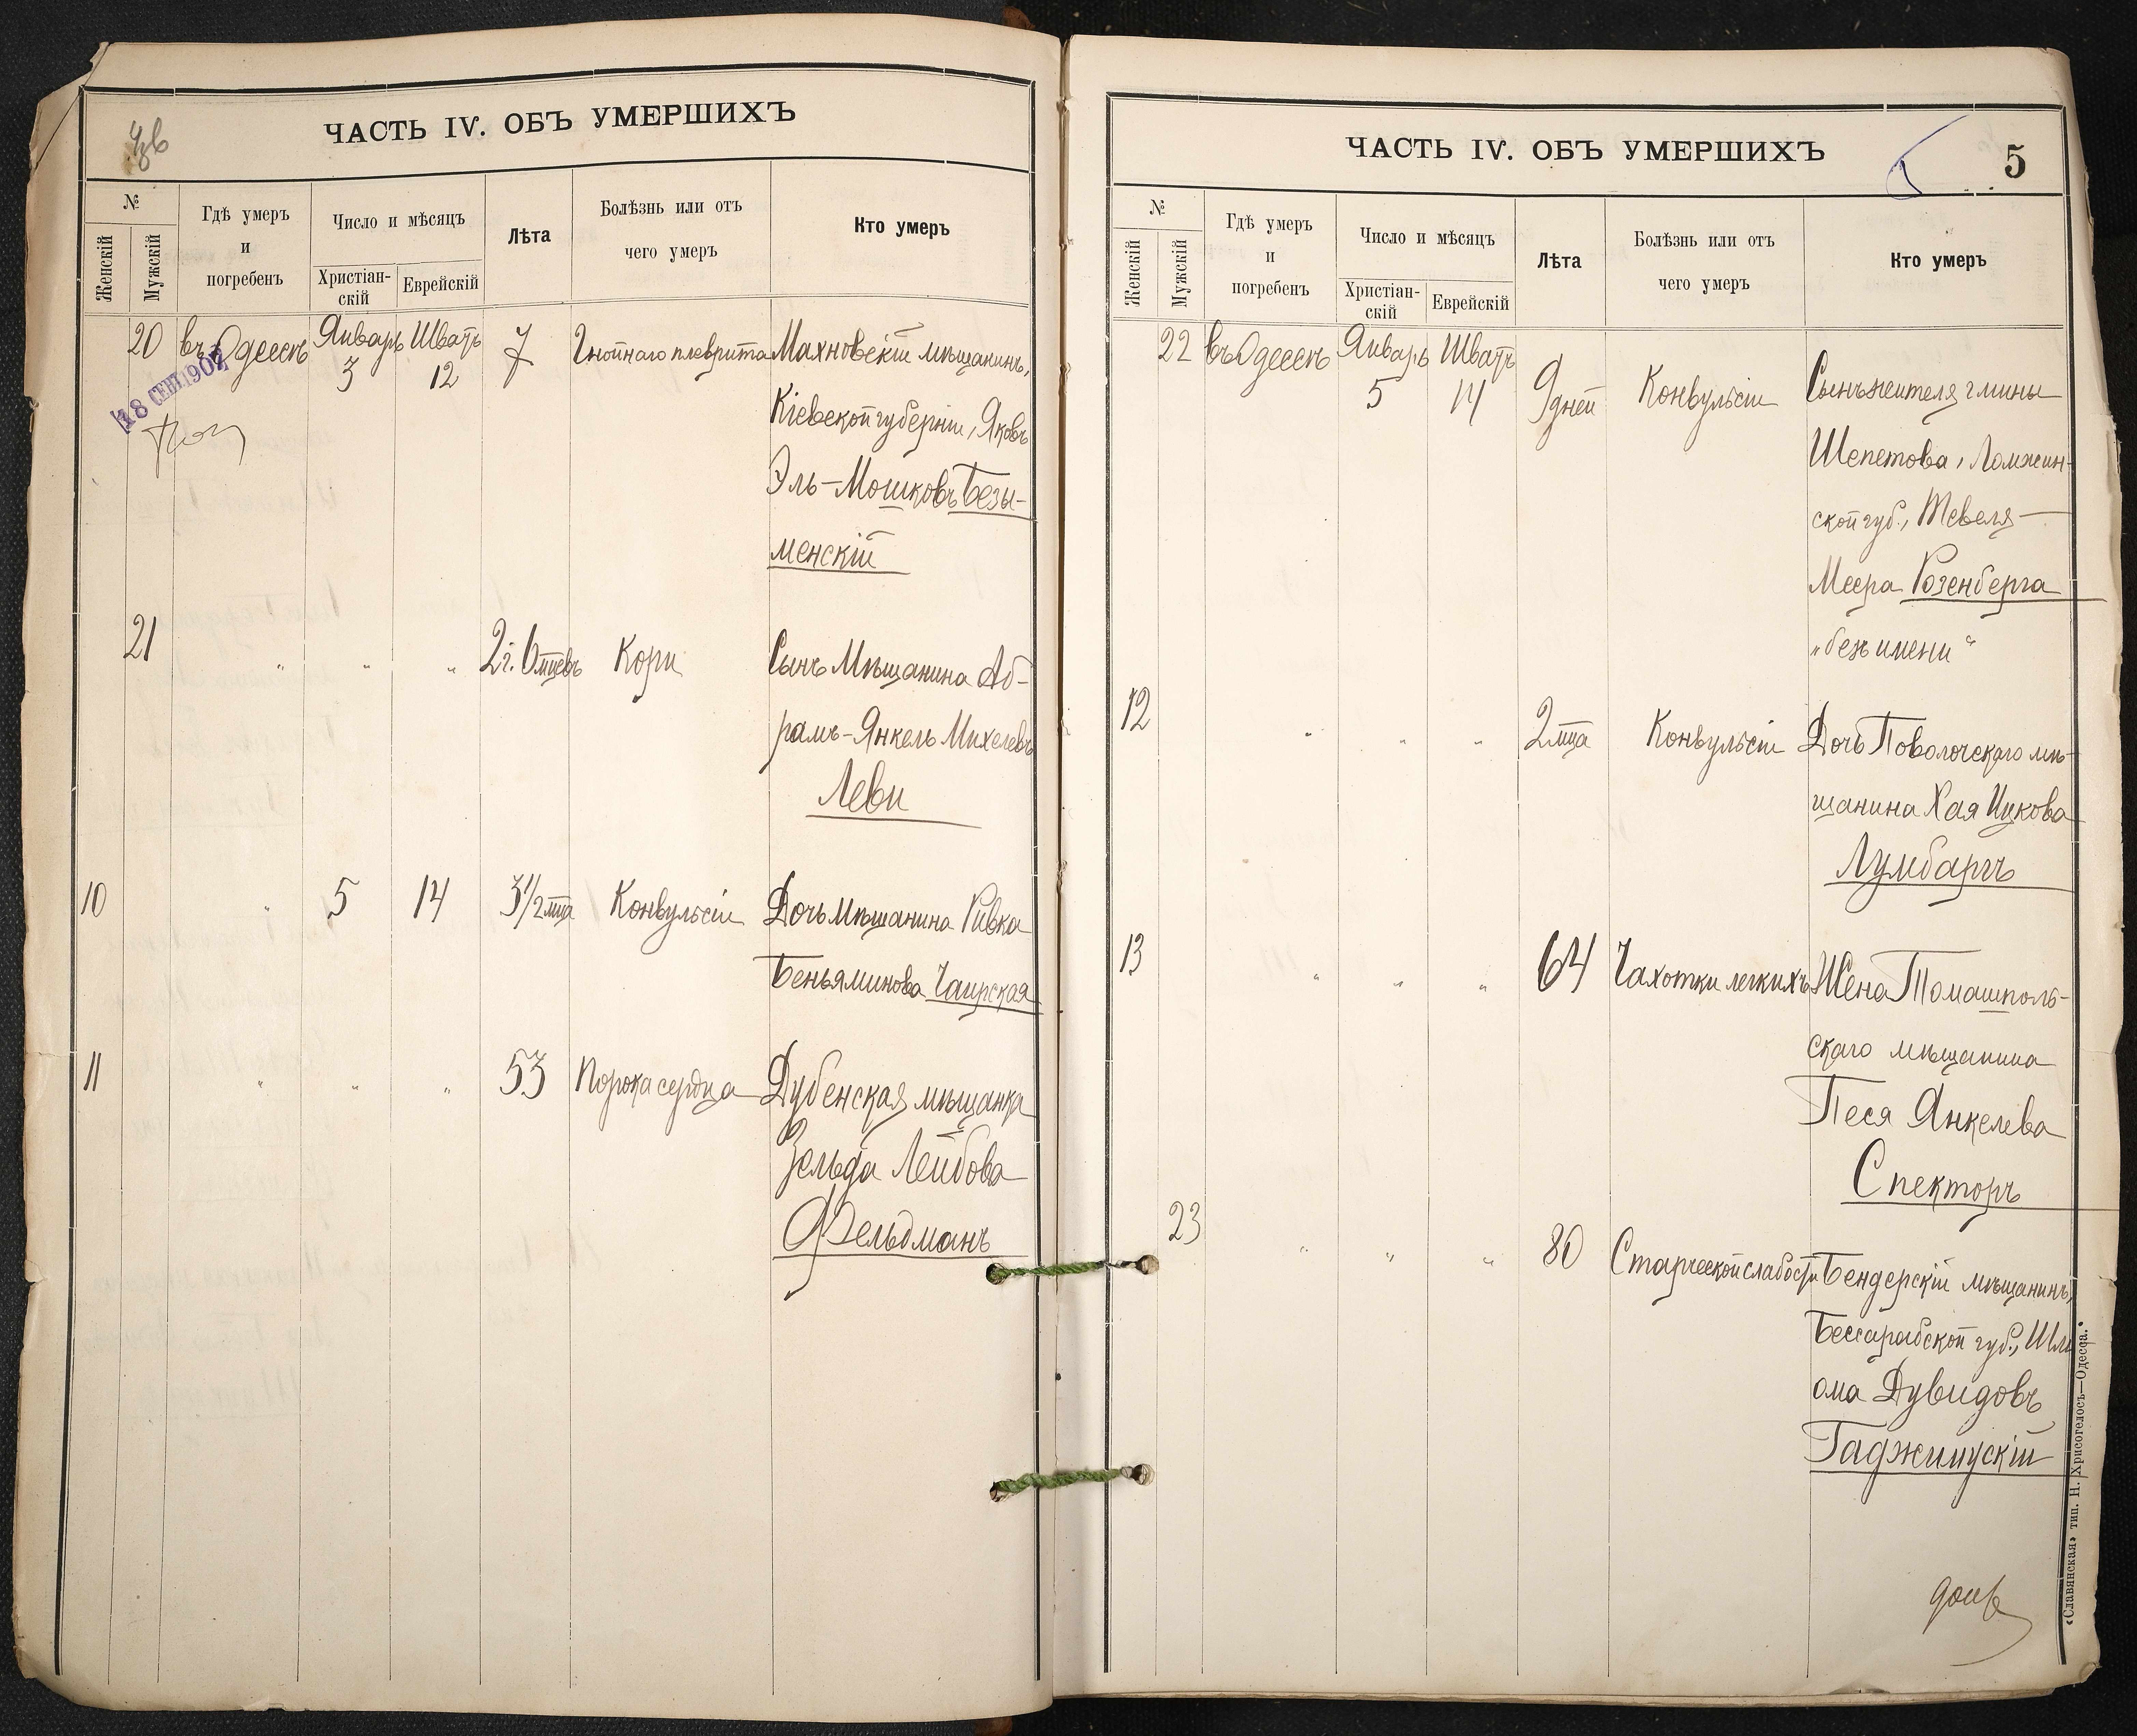 ЧАСТЬ IV. ОБЪ УМЕРШИХЪ
№
Женскій
Мужскій
Гдѣ умеръ
и
погребенъ
Число и мѣсяцъ
Христіан-
скій
Еврейскій
Лѣта
Болѣзнь или отъ
чего умеръ
Кто умеръ
20 въ Одессѣ Январь 3 Шватъ 12 7 Гнойнаго плеврита Махновскій мѣщанинъ,
Кіевской губерніи, Яковъ
Эль-Мошковъ Безы-
менскій
18 СЕНТ 1902
21 " " " 2 г. 6 мцевъ Кори Сынъ Мѣщанина Аб-
рамъ-Янкель Михелевъ
Леви
10 " 5 14 3 1/2 мца Конвульсіи Дочь Мѣщанина Ривка
Беньяминова Чаирская
11 " " " 53 Порока сердца Дубенская мѣщанка
Зельда Лейбова
Фельдманъ
ЧАСТЬ IV. ОБЪ УМЕРШИХЪ
5
№
Женскій
Мужскій
Гдѣ умеръ
и
погребенъ
Число и мѣсяцъ
Христіан-
скій
Еврейскій
Лѣта
Болѣзнь или отъ
чего умеръ
Кто умеръ
22 въ Одессѣ Январь 5 Шватъ 14 9 дней Конвульсіи Сынъ жителя гмины
Шепетова, Ломжин-
ской губ., Тевеля-
Меера Розенберга
„безъ имени“
12 " " " 2 мца Конвульсіи Дочь Поволочскаго мѣ-
щанина Хая Ицкова
Лумбаргъ
13 " " " 64 Чахотки легкихъ Жена Томашполь-
скаго мѣщанина
Песя Янкелева
Спекторъ
23 " " " 80 Старческой слабости Бендерскій мѣщанинъ,
Бессарабской губ., Шлі
ома Дувидовъ
Гаджипускій
«Славянская» тип. Н. Хрисогелосъ—Одесса.